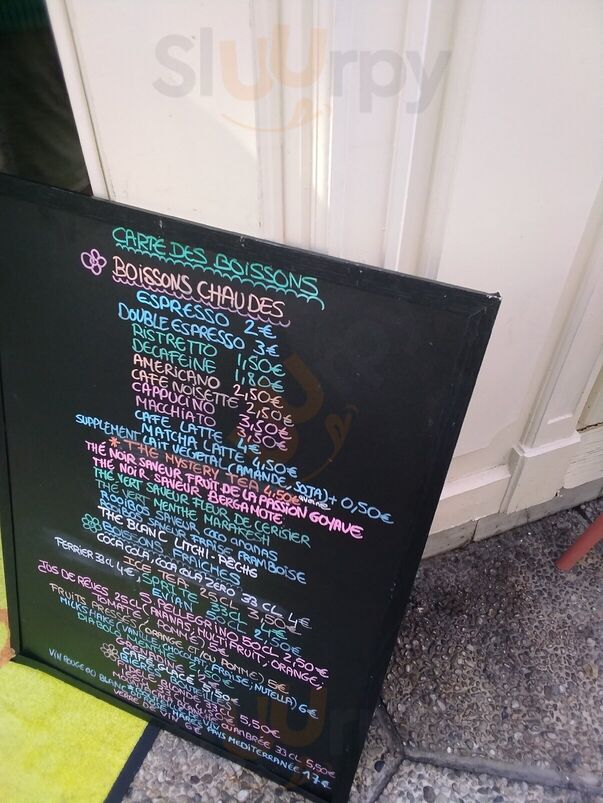 Sluurpy
CARTE DES BOISSONS
BOISSONS CHAUDES
ESPRESSO 2€
DOUBLE ESPRESSO 3€
RISTRETTO 1,50€
DECAFEINE 1,80€
AMERICANO 2,50€
CAFE NOISETTE 2,50€
CAPPUCINO 3,50€
MACCHIATO 3,50€
CAFE LATTE 4€
MATCHA LATTE 4,50€
SUPPLEMENT LAIT VEGETAL (AMANDE, SOJA) + 0,50€
* THE MYSTERY TEA 4,50€
THÉ NOIR SAVEUR FRUIT DE LA PASSION GOYAVE
THÉ NOIR SAVEUR BERGAMOTE
THÉ VERT SAVEUR FLEUR DE CERISIER
THÉ VERT MENTHE MARAKESH
ROOIBOS SAVEUR COCO ANANAS
ROOIBOS SAVEUR FRAISE FRAMBOISE
THE BLANC LITCHI-PÊCHE
BOISSONS FRAICHES
COCA COLA/COCA COLA ZERO 33 CL 4€
ICE TEA 25CL 3,50€
PERRIER 33 CL 4€, SPRITE 33CL 4€
EVIAN 50CL 2,50€
S. PELLEGRINO 50CL 2,50€
JUS DE RÊVES 25CL (ANANAS, MULTIFRUIT, ORANGE,
TOMATE, POMME) 5€
FRUITS PRESSÉS (ORANGE ET/OU POMME) 5€
MILKSHAKE (VANILLE, CHOCOLAT, FRAISE, NUTELLA) 6€
DIABOLO
CAFE GLACE 5,50€
BLONDE 33 CL 5,50€
BLONDE OU AMBRÉE 33 CL 5,50€
VIN ROUGE OU BLANC PAYS MEDITERRANÉE 17€
VERRE DE VIN 6€